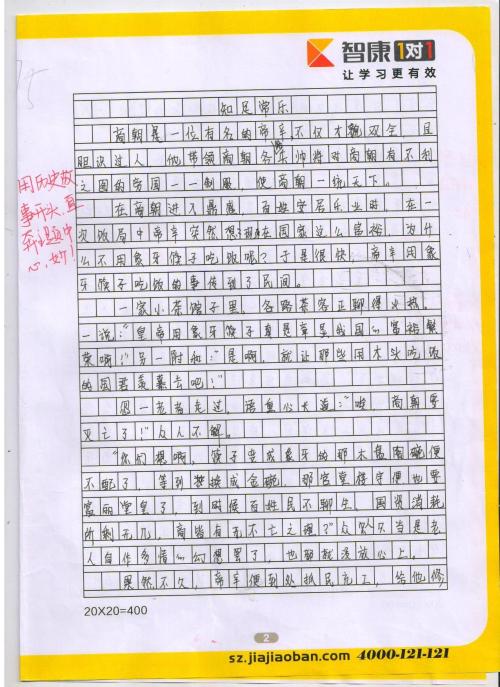 智康1对1
让学习更有效
知足常乐
商朝是一位有名的帝辛,不仅才貌双全,且
胆识过人,他带领商朝各路帅将对商朝有不利
之国的帝国一一制服,使商朝一统天下。
在商朝进入鼎盛,百姓安居乐业时,在一
次饭局中帝辛突然想:现在国家这么富裕,为什
么不用象牙筷子吃饭呢?于是很快,帝辛用象
牙筷子吃饭的事传到了民间。
一家小茶馆子里,各路茶客正聊得火热。
一说:"皇帝用象牙筷子真是我国富裕繁
荣啊!"另一附和:"是啊,就让那些用木头吃饭
的国君羡慕去吧!"
一老者走过,语重心长道:"唉,商朝要
灭亡了!"众人不解。
"你们想啊,筷子变成象牙的那木盘陶碗便
不配了,等到换成金碗,那宫室得守便也要
富丽堂皇了,到时候百姓民不聊生,国资消耗
所剩无几,商有无不亡之理?"众人只当是老
人自作多情的幻想罢了,也就没放心上。
果然不久,帝辛便到处抓民充工,给他修
用历史故
事开头,直
奔主题中
心,好!
20X20=400
2
sz.jiajiaoban.com 4000-121-121